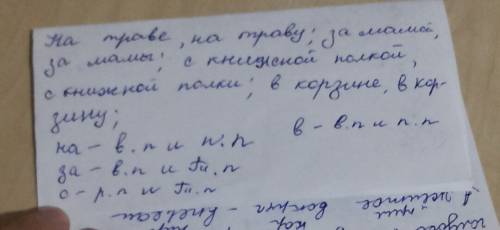 На траве, на траву; за мамой,
за мамы; с книжной полкой,
с книжной полки; в корзине, в кор-
зину;
на - в.п и п.п в - в.п и п.п
за - в.п и Тп.п
с - р.п и Тп.п